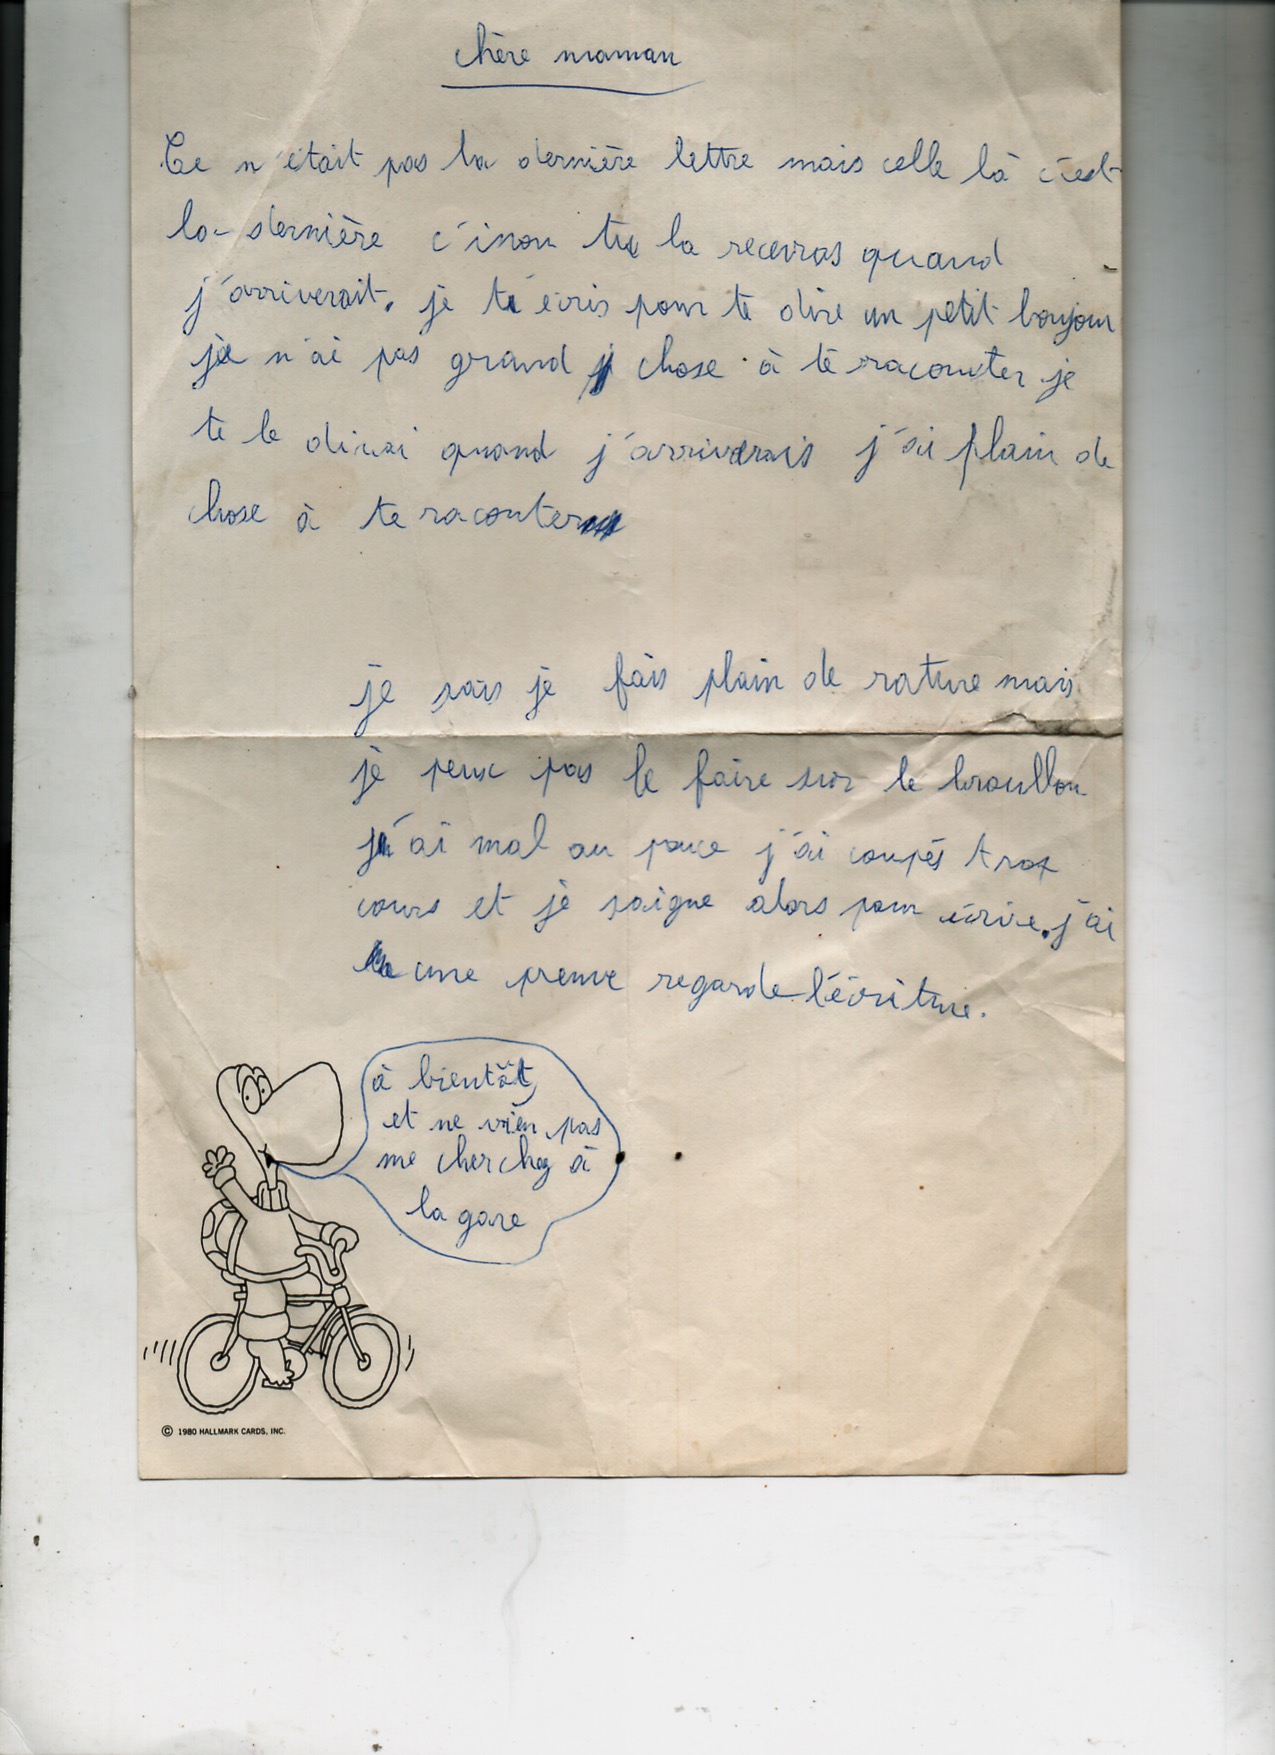 chère maman
Ce n'était pas la dernière lettre mais celle là c'est
la dernière c'inon tu la recevras quand
j'arriverait. je t'écris pour te dire un petit bonjour
je n'ai pas grand chose à te raconter je
te le dirai quand j'arriverais j'ai plain de
chose à te raconter
je sais je fais plain de rature mais
je peux pas le faire sur le brouillon
j'ai mal au pouce j'ai coupés trop
cours et je saigne alors pour écrire. j'ai
une preuve regarde l'écriture.
à bientôt
et ne vien pas
me cherchez à
la gare
© 1980 HALLMARK CARDS, INC.